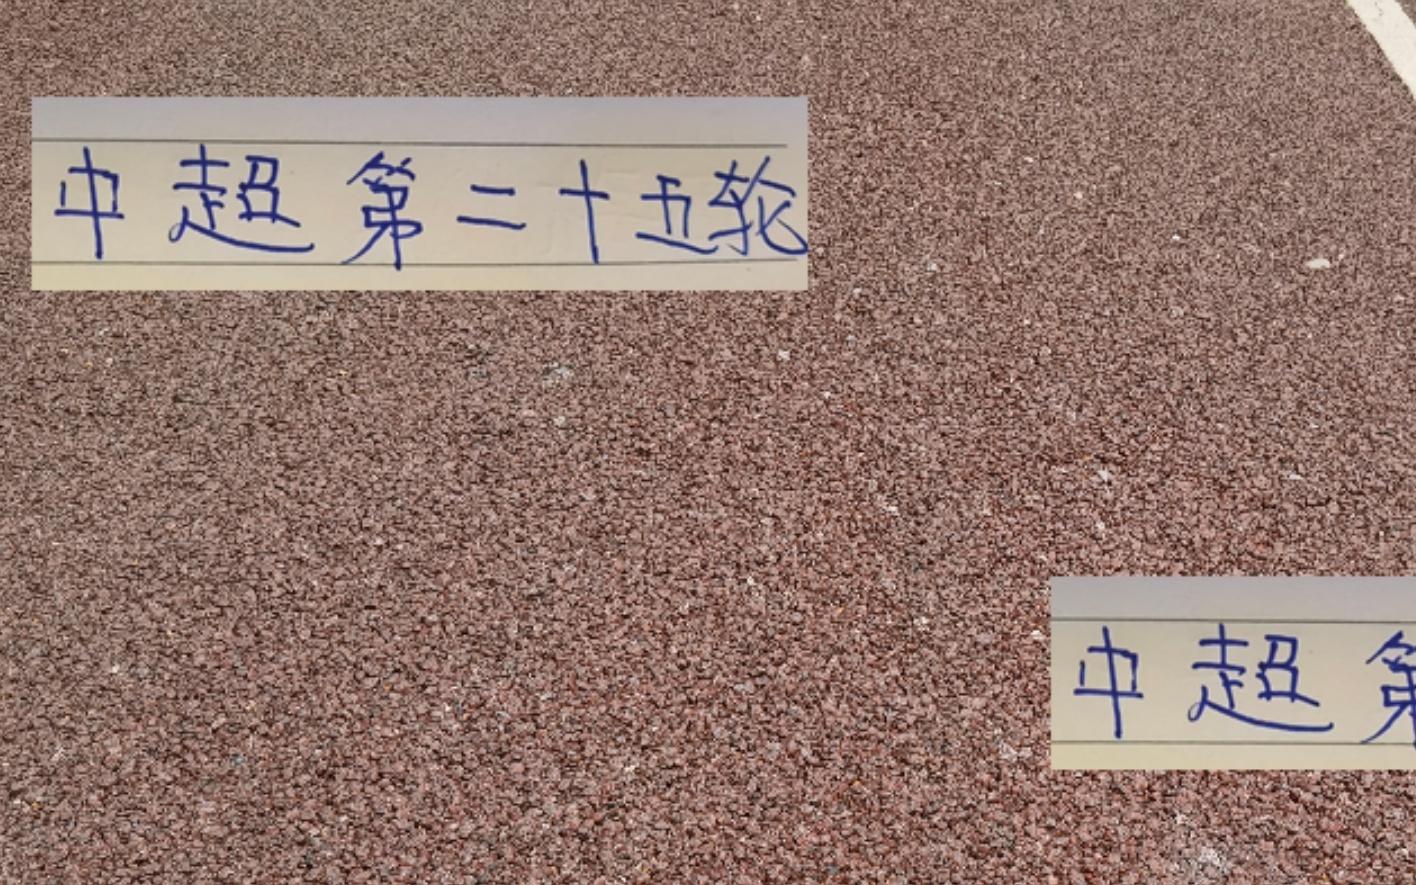 中超第二十五轮
中超第